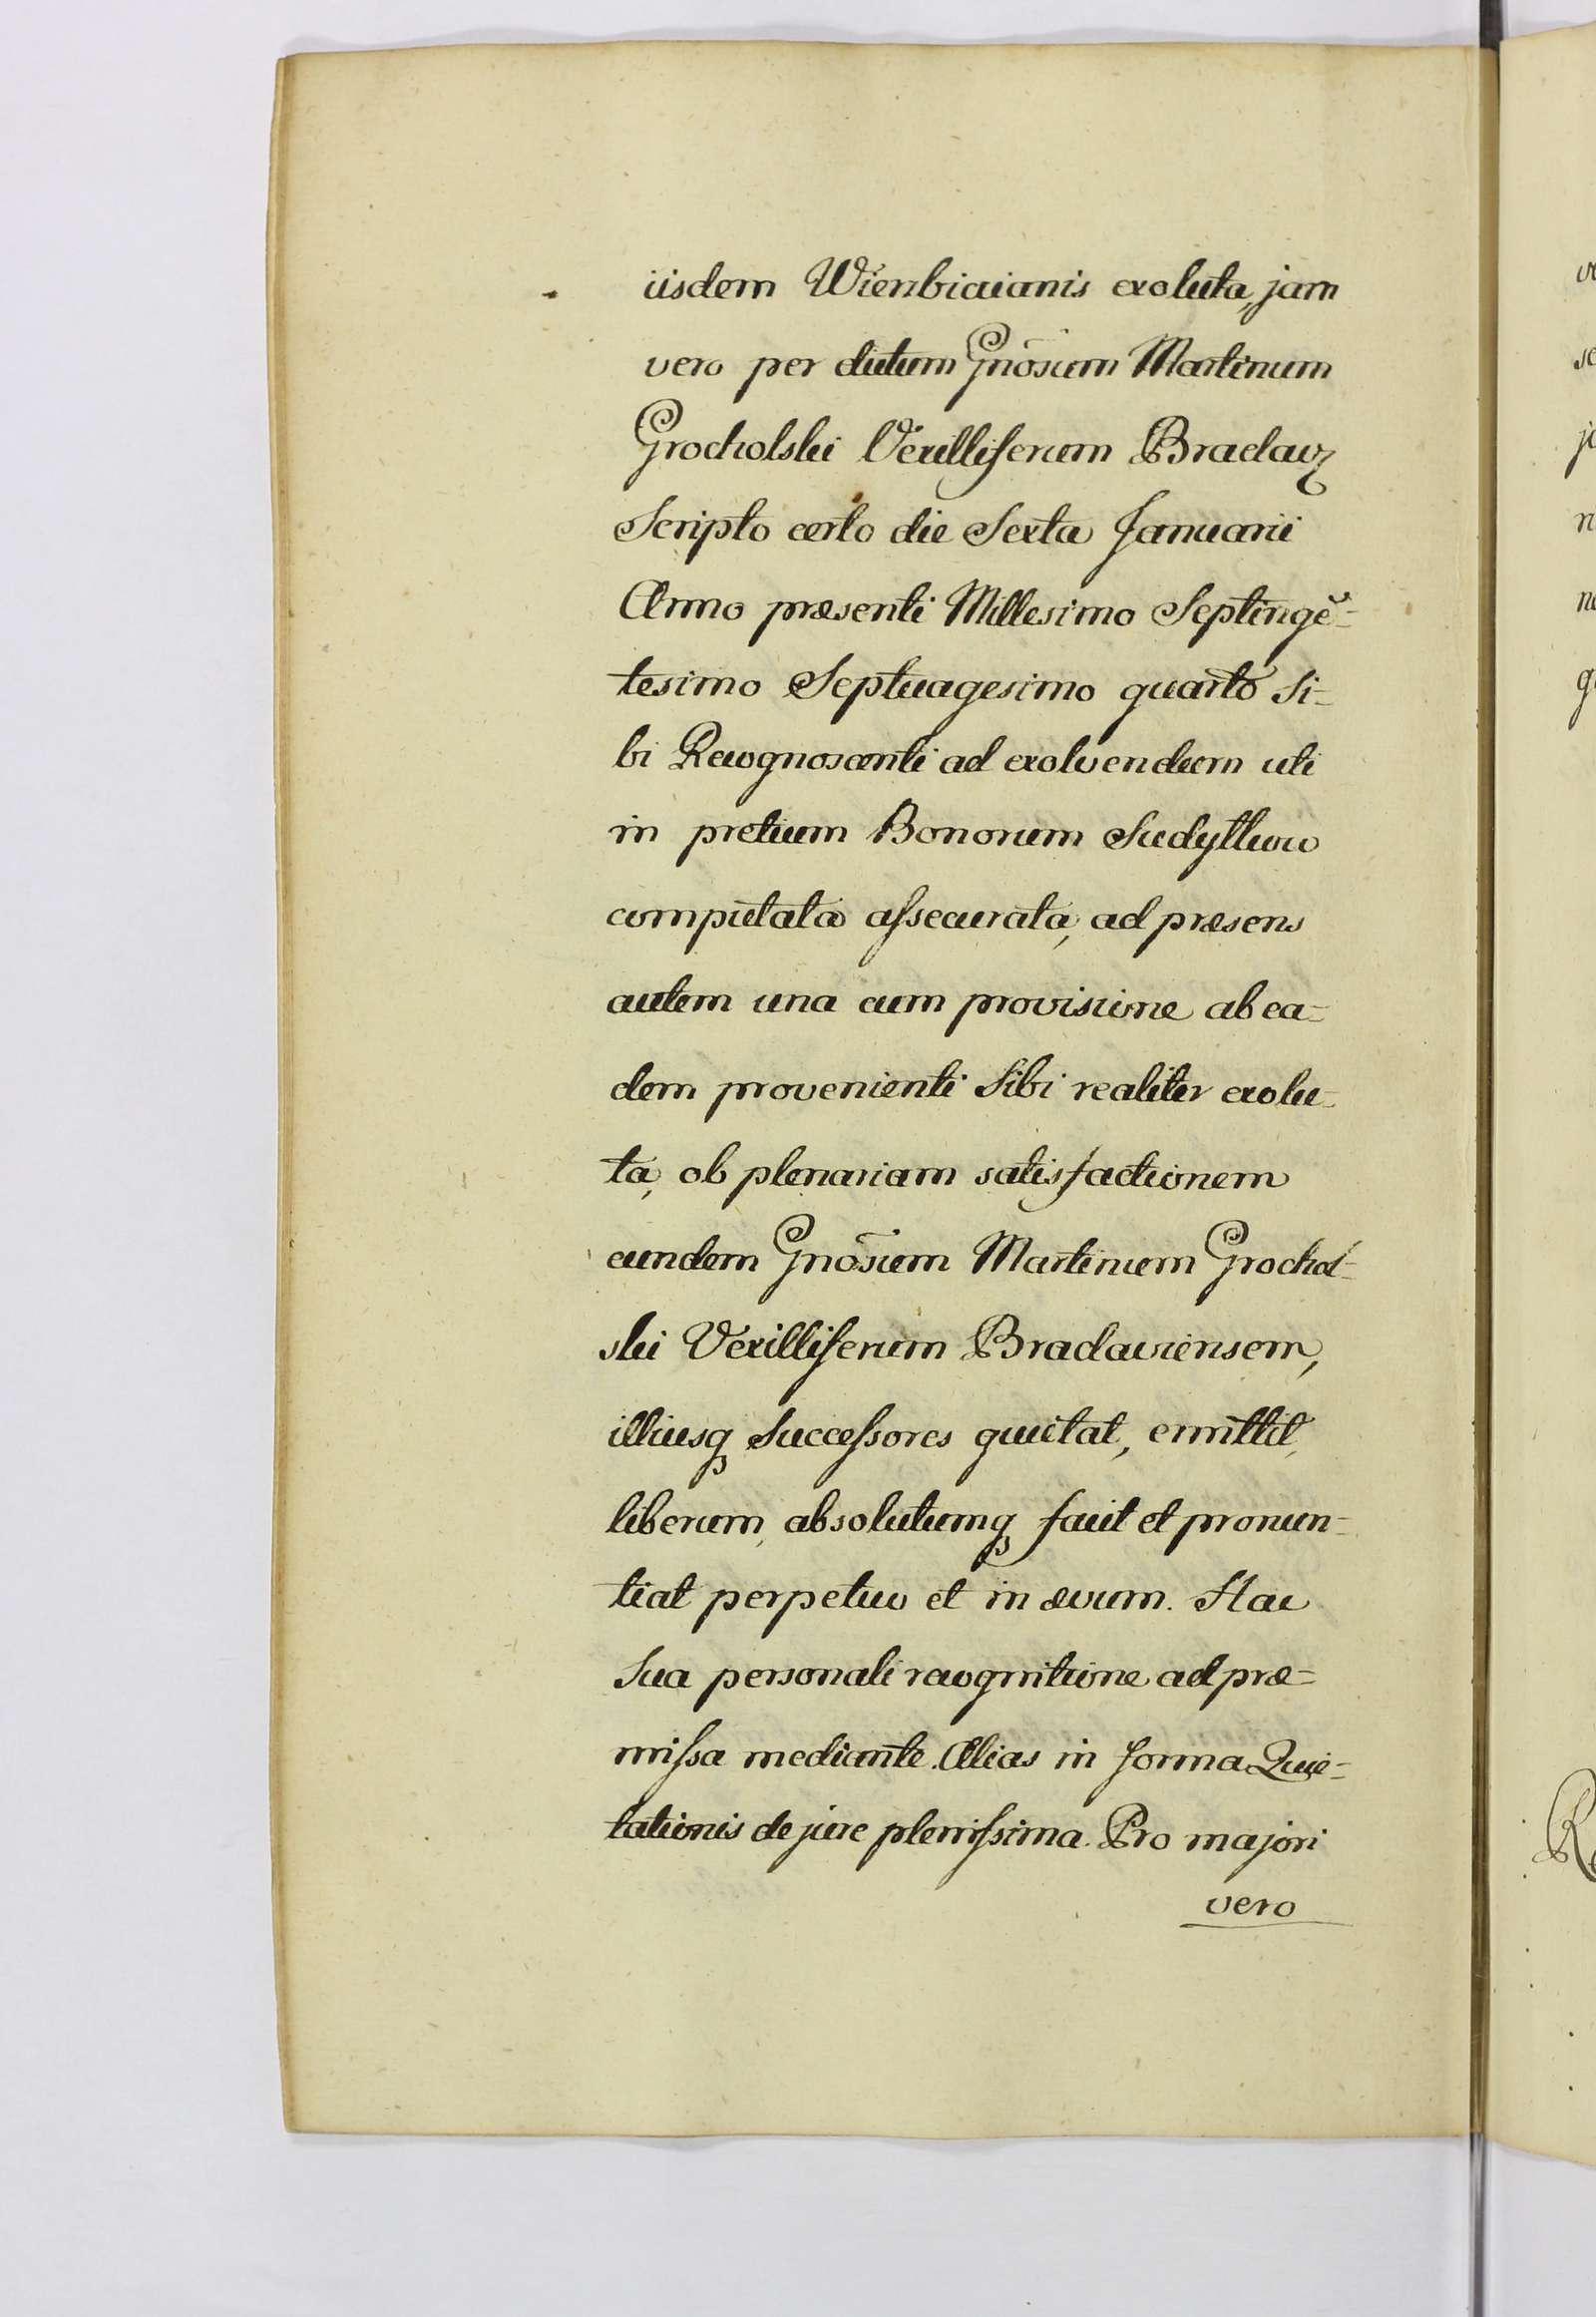 iisdem Wierzbicianis exoluta, jam
vero per dictum Gnōsum Martinum
Grocholski Vexilliferum Braclavȝ
Scripto certo die Sexta Januarii
Anno præsenti Millesimo Septingē=
tesimo Septuagesimo quarto Si=
bi Recognoscenti ad exolvendum uti
in pretium Bonorum Sudyłkow
computata aſsecurata, ad præsens
autem una cum provisione ab ea=
dem provenienti Sibi realiter exolu=
ta, ob plenariam satisfactionem
eundem Gnōsum Martinum Grochol=
ski Vexilliferum Braclaviensem,
illiusq Succeſsores quietat, emittit,
liberum, absolutumq facit et pronun=
tiat perpetuo et in ævum. Hac
Sua personali recognitione ad præ=
miſsa mediante. Alias in forma Quie=
tationis de jure pleniſsima. Pro majori
vero